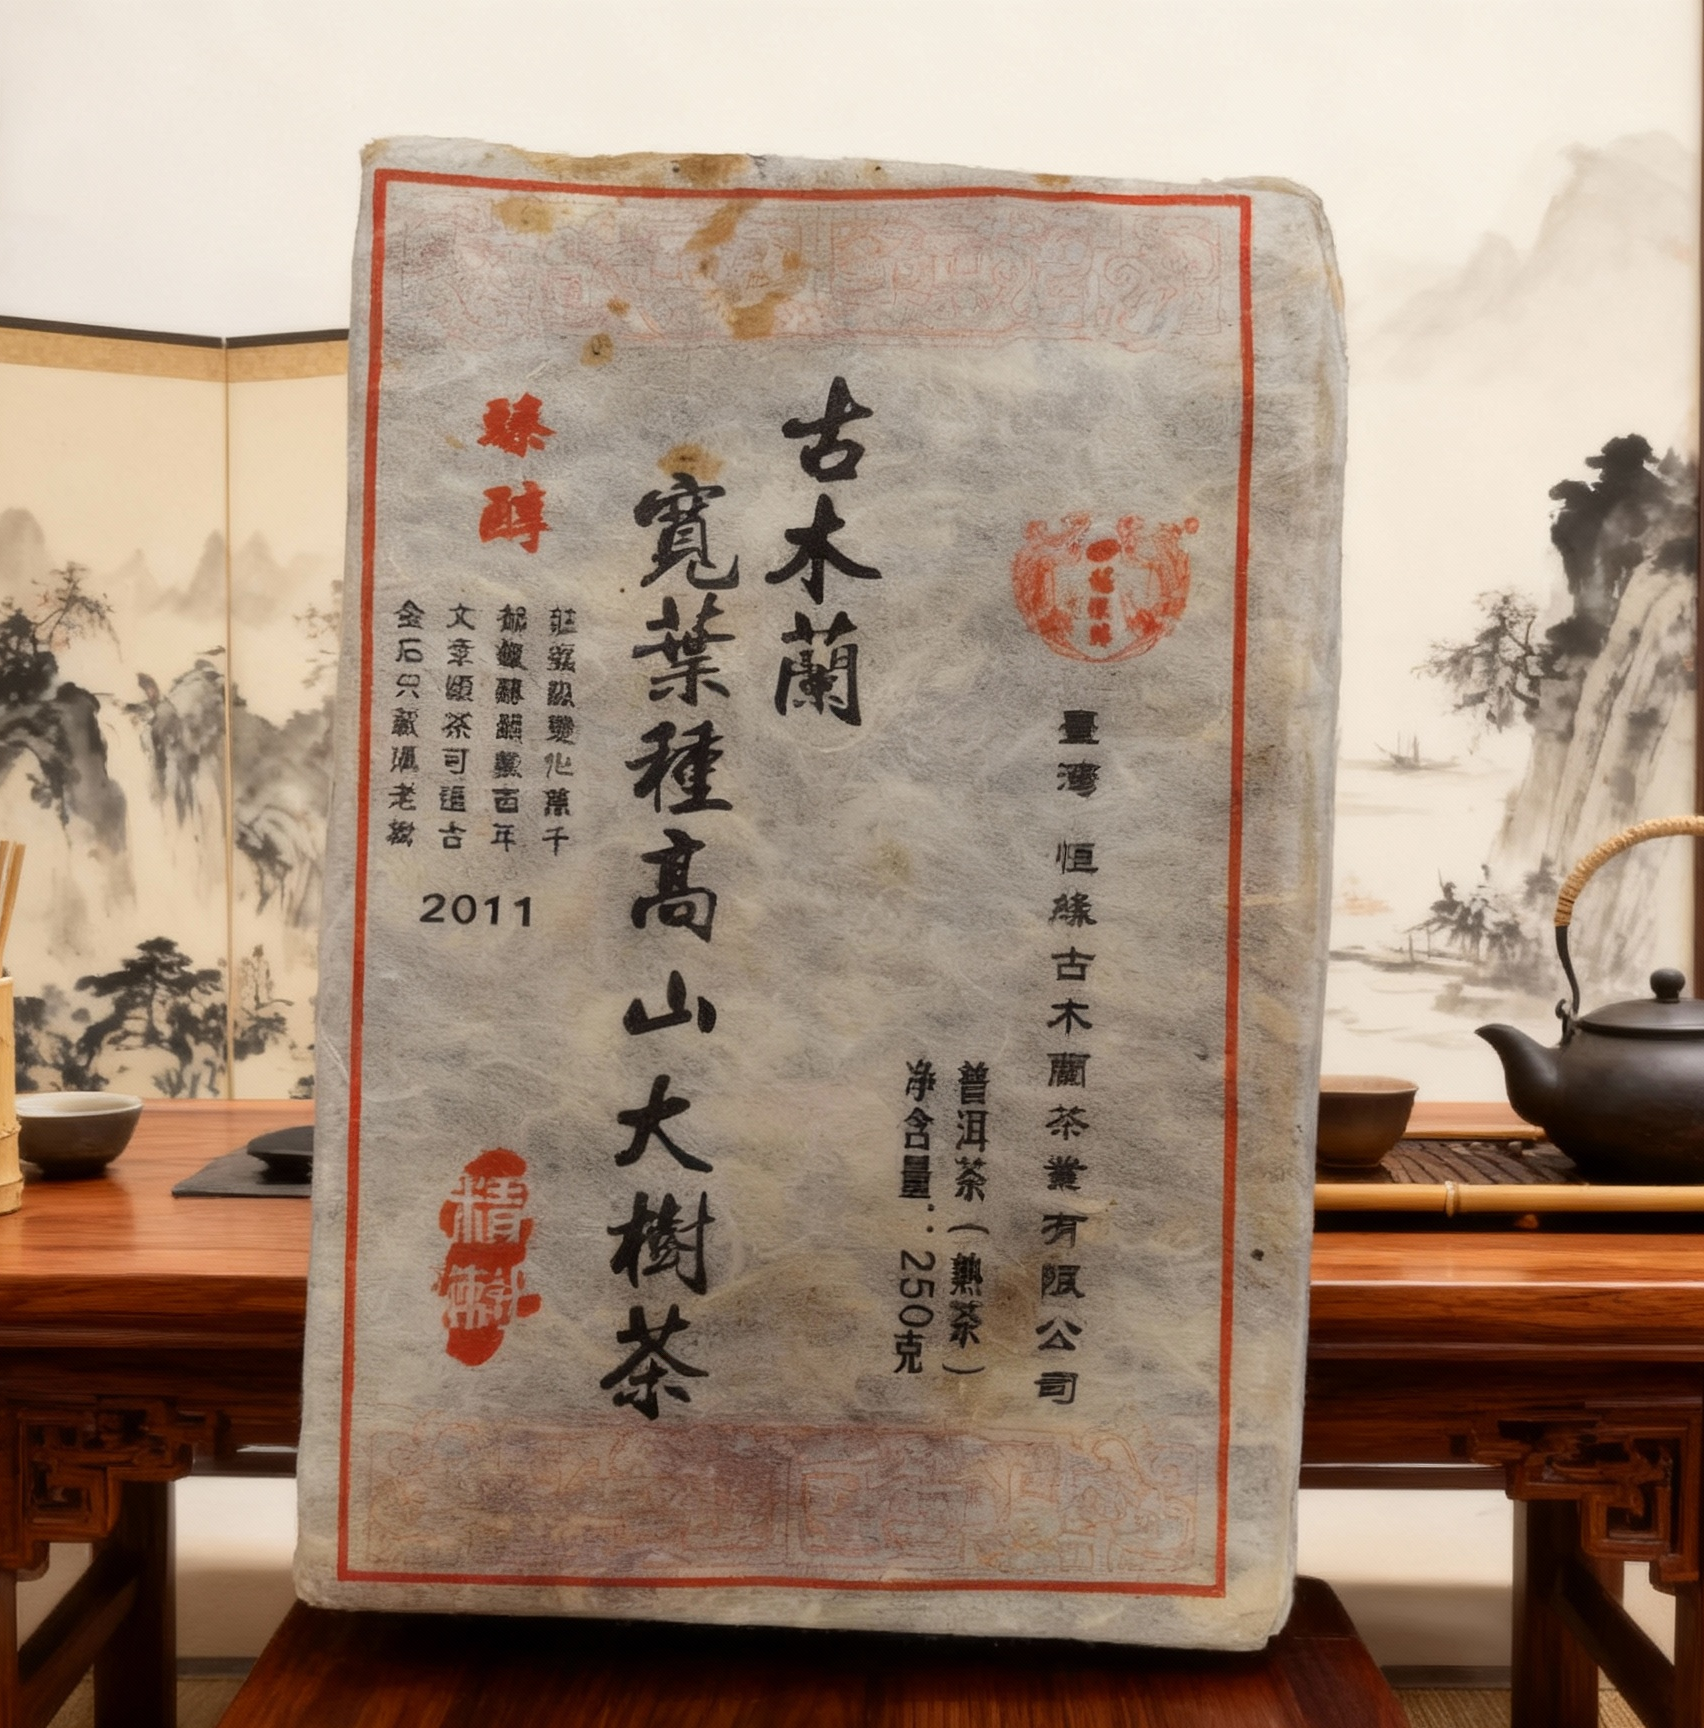 臺灣 恒緣古木蘭茶業有限公司
普洱茶(熟茶)
净含量:250克
古木蘭
寬葉種高山大樹茶
臻醇
千
百年
文章順茶可追古
金石只藏馮老樹
2011
精製